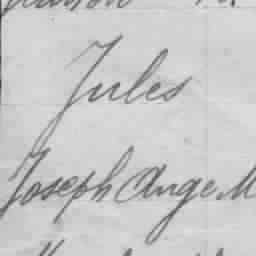 Jules
Joseph Ange M